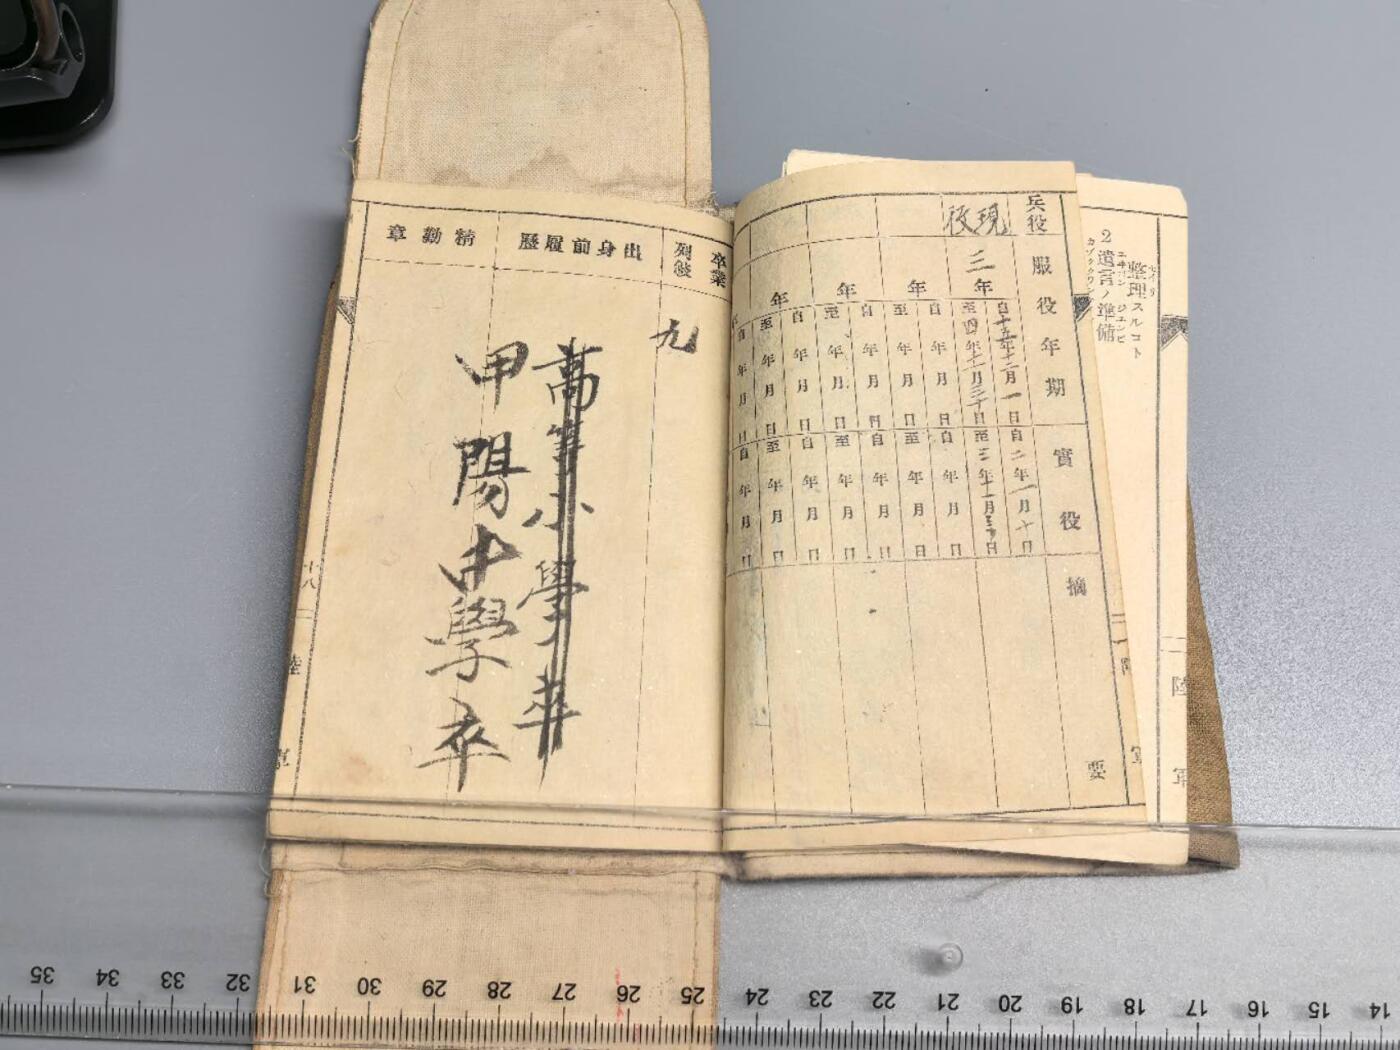 2 遺言ノ準備
整理スルコト
兵役
現役
服役年期
三年
自十五年十二月一日
至四年十一月三十日
年
自 年 月 日
至 年 月 日
年
自 年 月 日
至 年 月 日
年
自 年 月 日
至 年 月 日
實役
自二年一月十日
至三年十一月三十日
自 年 月 日
至 年 月 日
自 年 月 日
至 年 月 日
自 年 月 日
至 年 月 日
摘要
陸軍
卒業
列級
九
出身前履歴
高等小學卒
甲陽中學卒
精勤章
十八
陸軍
35 34 33 32 31 30 29 28 27 26 25 24 23 22 21 20 19 18 17 16 15 14